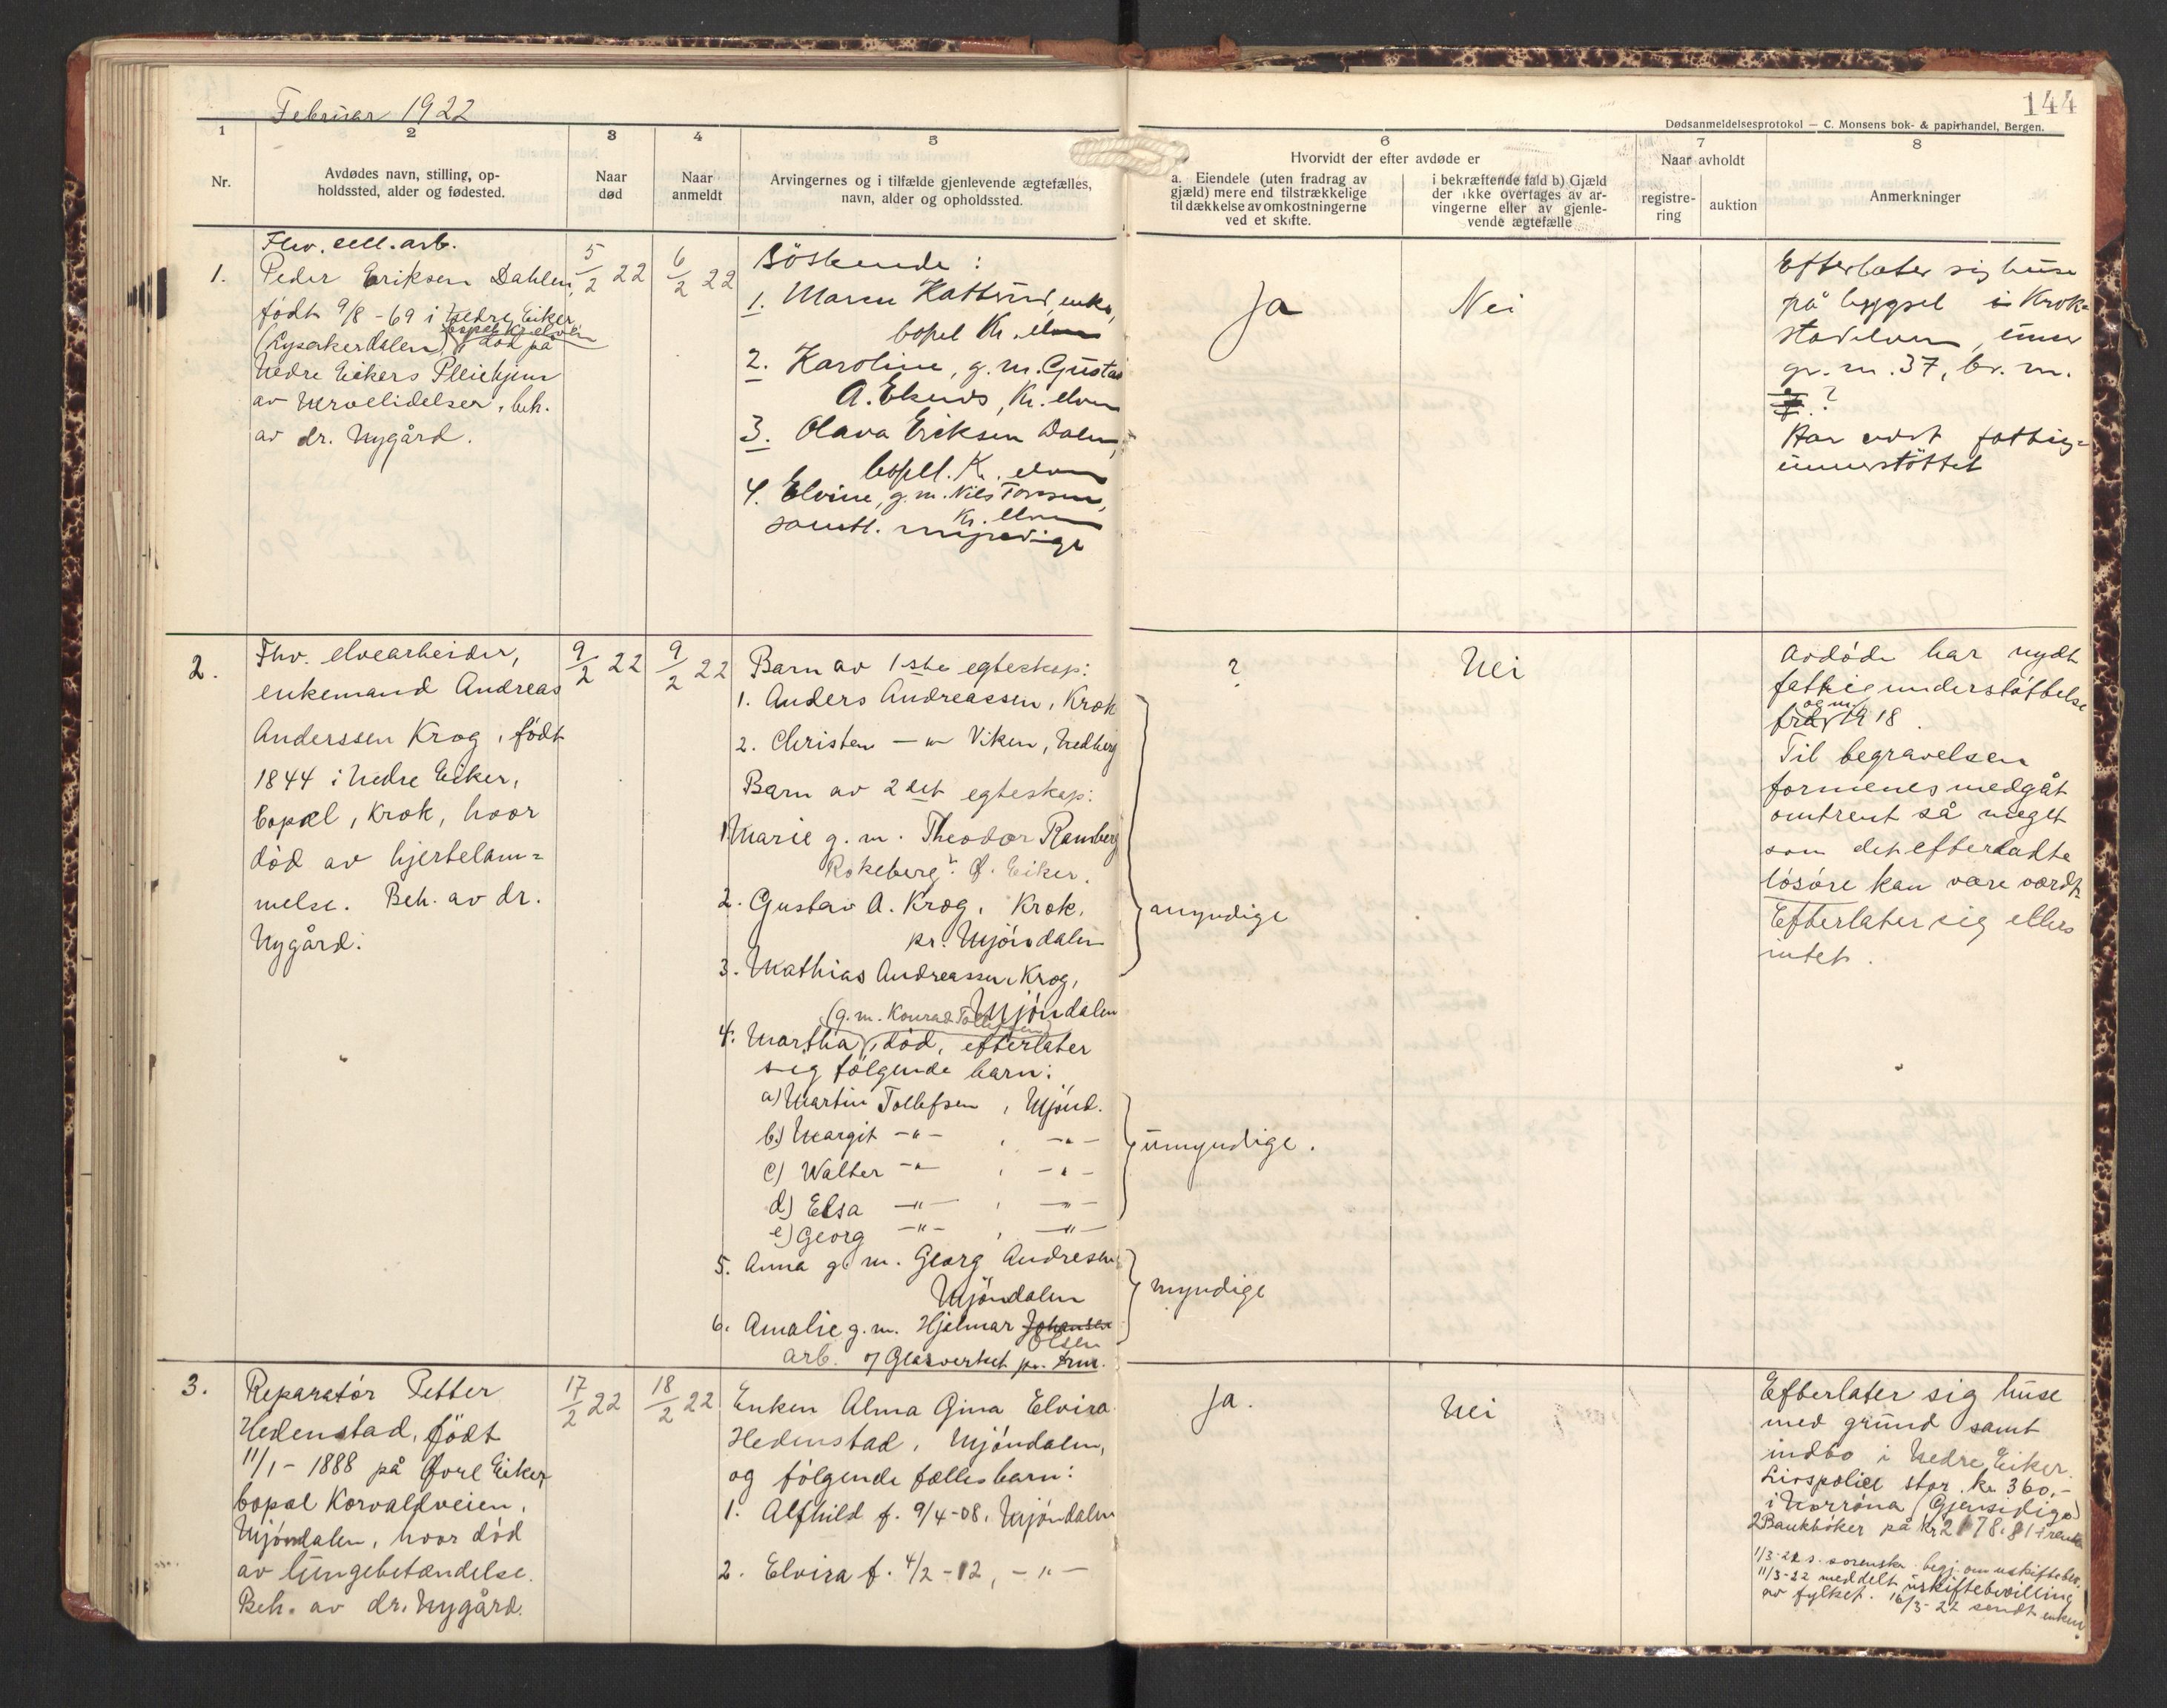 Februar 1922
144
Dødsanmeldelsesprotokol — C. Monsens bok- & papirhandel, Bergen.
1
2
3
4
5
6
7
8
Nr.
Avdødes navn, stilling, op-
holdssted, alder og fødested.
Naar
død
Naar
anmeldt
Arvingernes og i tilfælde gjenlevende ægtefælles,
navn, alder og opholdssted.
Hvorvidt der efter avdøde er
a. Eiendele (uten fradrag av
gjæld) mere end tilstrækkelige
til dækkelse av omkostningerne
ved et skifte.
i bekræftende fald b) Gjæld
der ikke overtages av ar-
vingerne eller av gjenle-
vende ægtefælle
Naar avholdt
registre-
ring
auktion
Anmerkninger
1.
Fhv. cell. arb.
Peder Eriksen Dahlen,
født 9/8 - 69 i Nedre Eiker
(Ryserkerdalen), bopel Kr. elven
død på
Nedre Eikers Pleiehjem
av Nervelidelser, beh.
av dr. Nygård.
5/2 22
6/2 22
Søskende :
1. Maren Kattrud, enke,
bopel Kr. elven
2. Karoline, g. m. Gustav
A. , Kr. elven
3. Olava Eriksen Dalen,
bopel. Kr. elven
4. Elvine, g. m. Nils ,
Kr. elven
samtl. myndige
Ja
Nei
Efterlater sig huse
på bygsel i Krok-
stadelven, under
gr. nr. 37, br. nr.
?
Har vært fattig-
understöttet
2.
Fhv. elvearbeider,
enkemand Andreas
Anderssen Krog, født
1844 i Nedre Eiker,
bopæl, Krok, hvor
død av hjertelam-
melse. Beh. av dr.
Nygård.
9/2 22
9/2 22
Barn av 1ste egteskap:
1. Anders Andreassen, Krok
2. Christen — " — Viken, Nedberg
Barn av 2det egteskap:
1. Marie g. m. Theodor Ramberg
Rokeberg? Ø. Eiker.
2. Gustav A. Krog, Krok,
pr. Mjøndalen
3. Mathias Andreassen Krog,
Mjøndalen
(g. m. Konrad Tollefsen)
4. Martha, død, efterlater
sig følgende barn:
a) Martin Tollefsen, Mjønd.
b) Margit — " — , — " —
c) Walter — " — , — " —
d) Elsa — " — , — " —
e) Georg — " — , — " —
5. Anna g. m. Georg Andresen
Mjøndalen
6. Amalie g. m. Hjelmar Johansen
Olsen
arb. v/ Glasverket pr. Drm.
?
Nei
myndige
umyndige.
myndige
Avdøde har nydt
fattigunderstøttelse
fra og m. 1918.
Til begravelsen
formenes medgåt
omtrent så meget
som det efterladte
løsøre kan være værdt.
Efterlater sig ellers
intet.
3.
Reparatør Petter
Hedenstad, født
11/1 - 1888 på Øvre Eiker,
bopæl Korvaldveien,
Mjøndalen, hvor død
av lungebetændelse.
Beh. av dr. Nygård.
17/2 22
18/2 22
Enken Alma Gina Elvira
Hedenstad, Mjøndalen,
og følgende fællesbarn:
1. Alfhild f. 9/4-08, Mjøndalen
2. Elvira f. 4/2-12, — " —
Ja.
Nei
Efterlater sig huse
med grund samt
indbo i Nedre Eiker.
Livspolice stor kr. 360,-
i Norröna (Gjensidige)
2 Bankbøker på kr. 2178.81 + renter
1/3-22 s. sorenskr. begj. om uskiftebev.
11/3-22 meddelt uskiftebevilling
av fylket. 16/3-22 sendt enken.